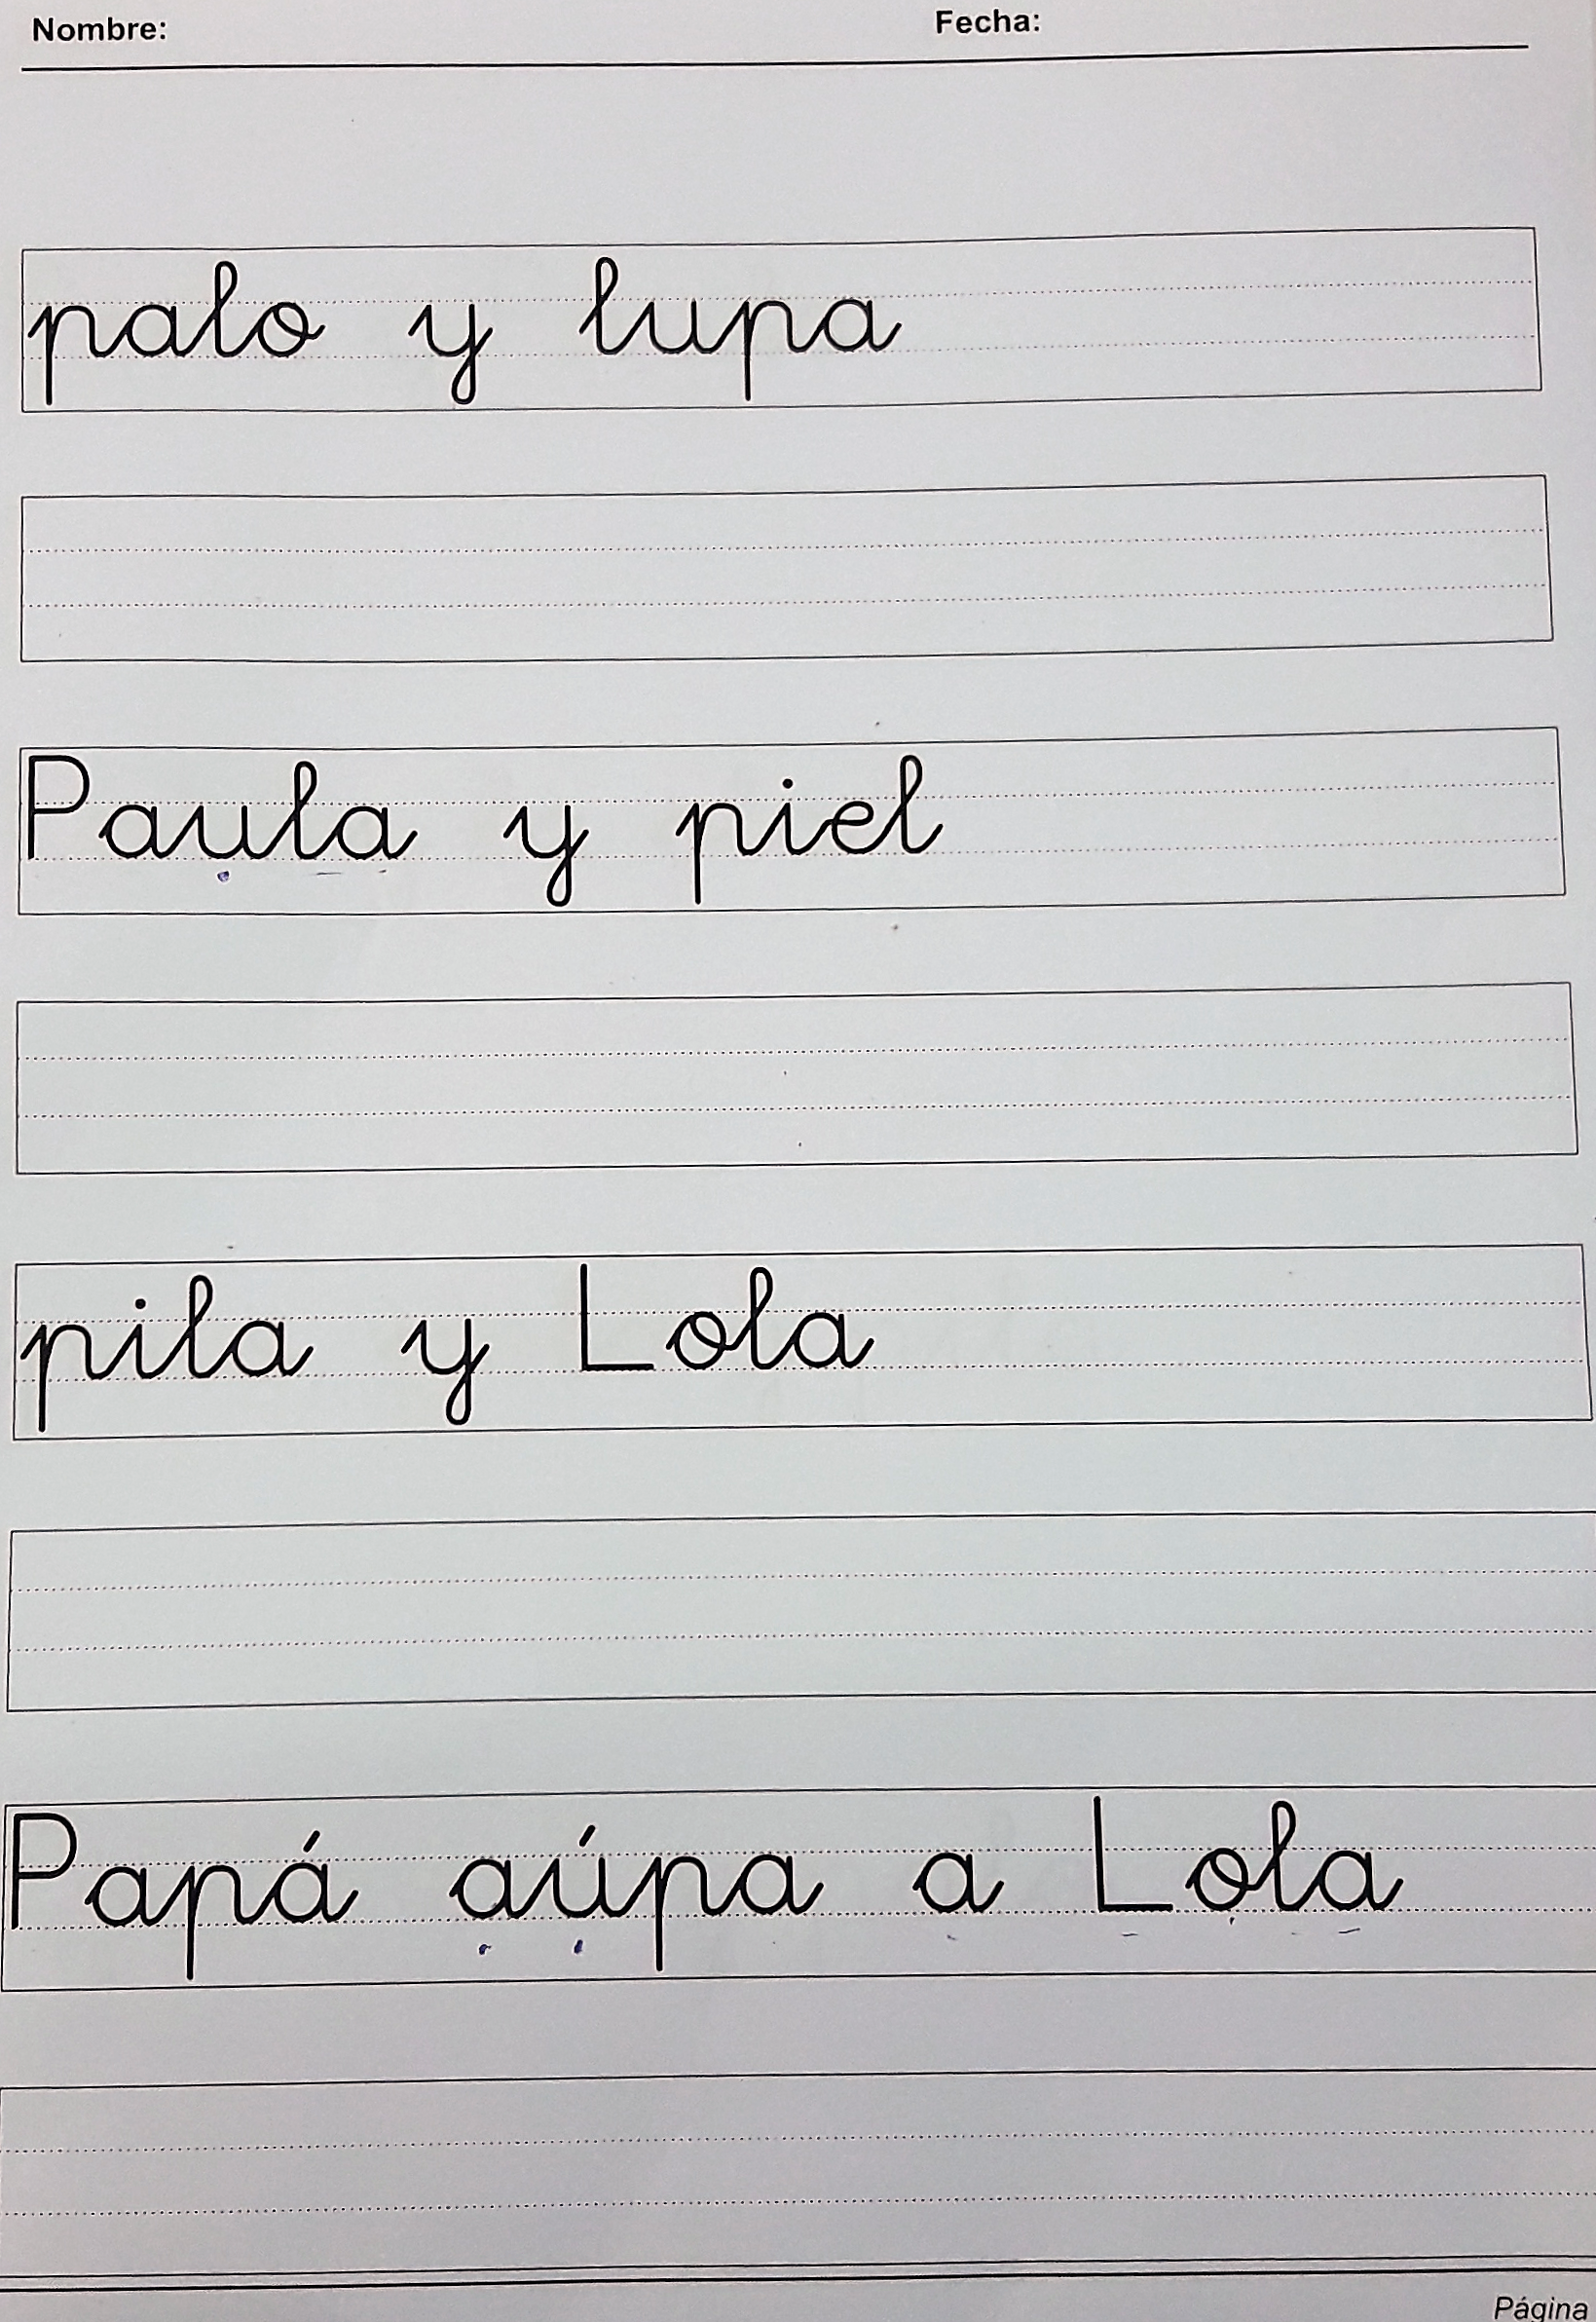 Nombre: Fecha:
palo y lupa
Paula y piel
pila y Lola
Papá aúpa a Lola
Página